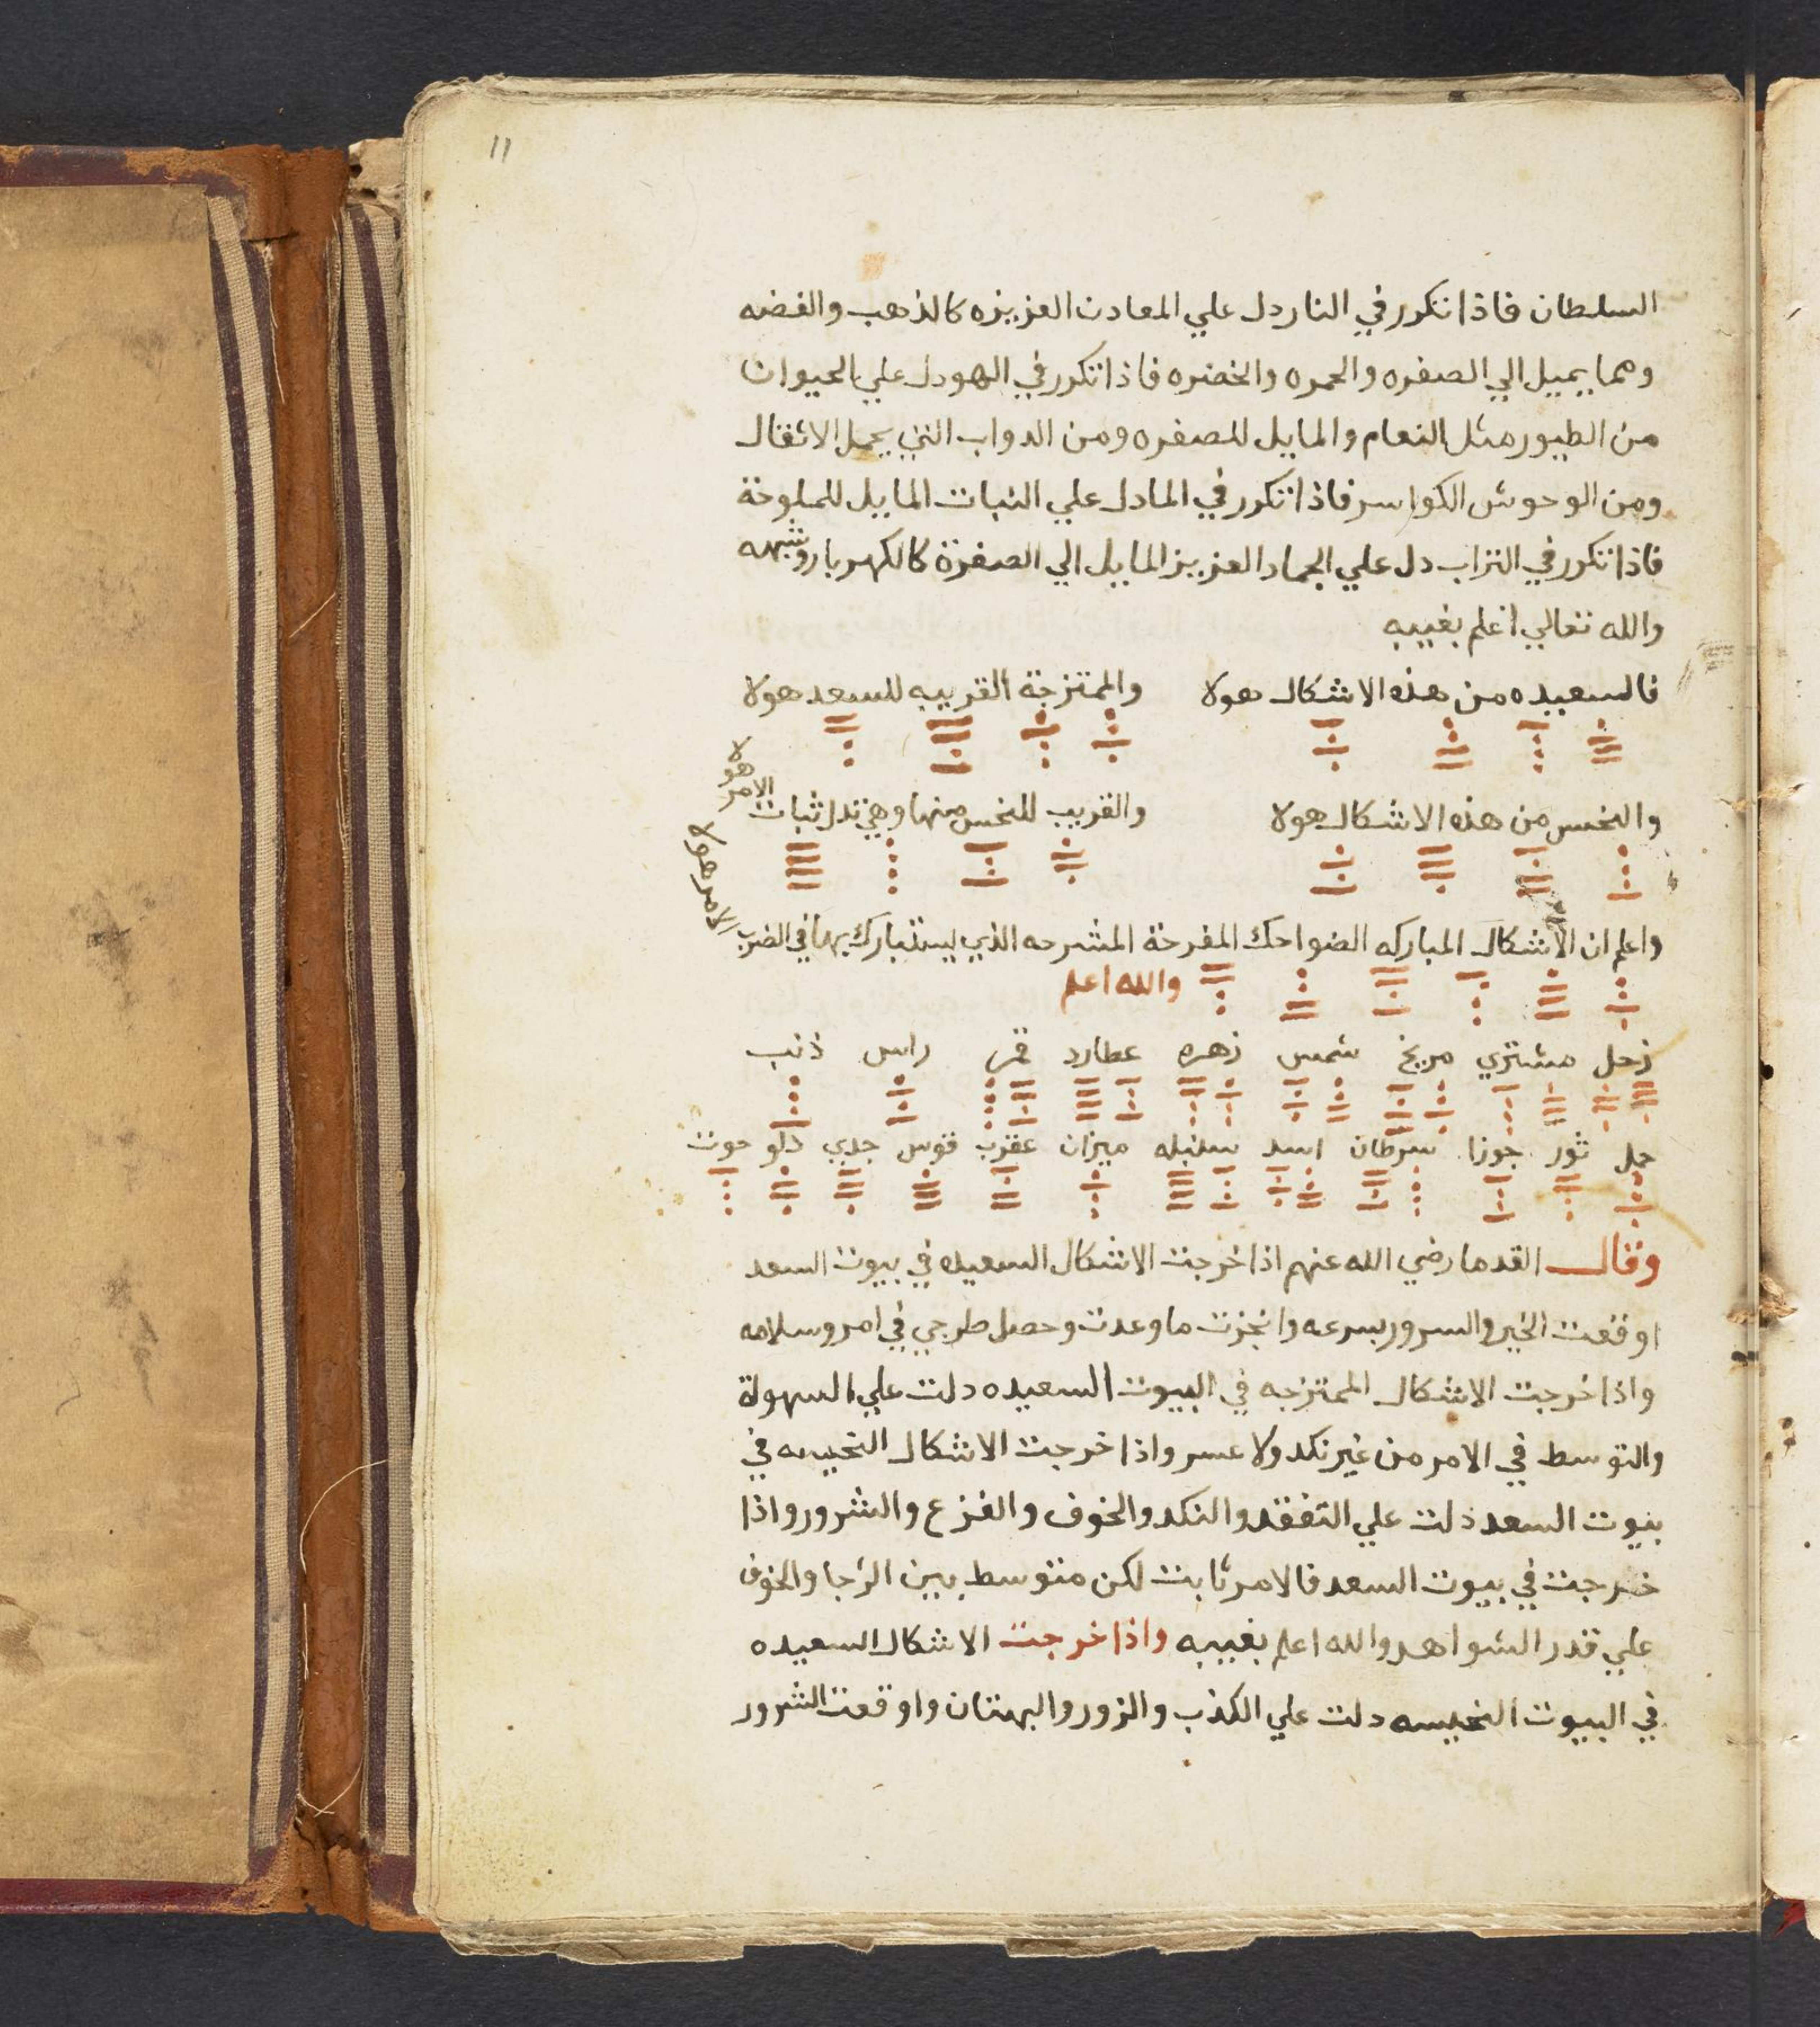 11
السلطان فاذا تكرر في النار دل علي المعادن العزيزه كالذهب والفضه
وهما يميل الي الصفره والحمره والخضره فاذا تكرر في الهو دل علي الحيوان
من الطيور مثل النعام والمايل للصفره ومن الدواب التي يحمل الاثقال
ومن الوحوش الكواسر فاذا تكرر في الما دل علي النبات المايل للملوحة
فاذا تكرر في التراب دل علي الجماد العزيز المايل الي الصفرة كالكهربا وشبهه
والله تعالي اعلم بغيبه
فالسعيده من هذه الاشكال هولا والممتزجة القريبه للسعد هولا
والنحس من هذه الاشكال هولا والقريب للنحس منها وهي تدل ثبات الامر هولا
الامر هولا
واعلم ان الاشكال المباركه الضواحك المفرحة المشرحه الذي يستبارك بها في الضرب
والله اعلم
زحل مشتري مريخ شمس زهره عطارد قمر راس ذنب
حمل ثور جوزا سرطان اسد سنبله ميزان عقرب قوس جدي دلو حوت
وقال القدما رضي الله عنهم اذا خرجت الاشكال السعيده في بيوت السعد
اوقعت الخير والسرور بسرعه وانجزت ما وعدت وحصل ما رجي في امر وسلامه
واذا خرجت الاشكال الممتزجه في البيوت السعيده دلت علي السهولة
والتوسط في الامر من غير نكد ولا عسر واذا خرجت الاشكال النحيسه في
بيوت السعد دلت علي التفقد والنكد والخوف والفزع والشرور واذا
خرجت في بيوت السعد فالامر ثابت لكن متوسط بين الرجا والخوف
علي قدر الشواهد والله اعلم بغيبه واذا خرجت الاشكال السعيده
في البيوت النحيسه دلت علي الكذب والزور والبهتان واوقعت الشرور